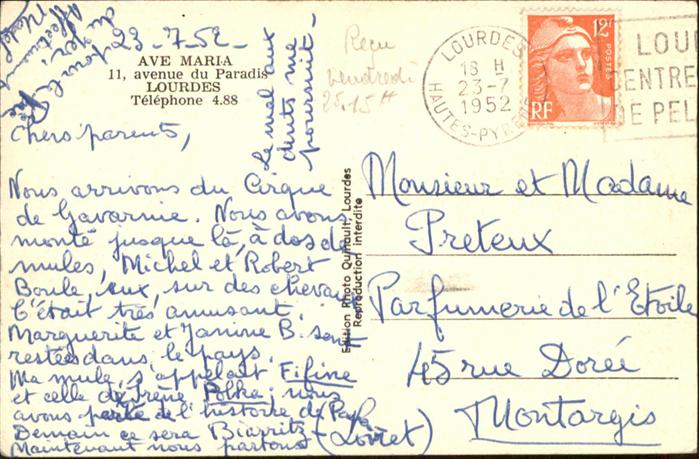 23-7-52
AVE MARIA
11, avenue du Paradis
LOURDES
Téléphone 4.88
Chers parents,
Nous arrivons du Cirque
de Gavarnie. Nous avons
monté jusque là, à dos de
mules, Michel et Robert
Boule, eux, sur des chevaux
C'était très amusant.
Marguerite et Janine B. sont
restées dans le pays.
Ma mule s'appelait Fifine
et celle de Irène Polka: nous
avons parlé de l'histoire de
Demain ce sera Biarritz
Maintenant nous partons
le mal aux
dents me
poursuit
Reçu
vendredi
25 15H
LOURDES
18 H
23-7
1952
HAUTES-PYRÉNÉES
12F
POSTES
RF
LOU
CENTRE
DE PEL
Edition Photo Quinault, Lourdes
Reproduction interdite
Monsieur et Madame
Preteux
Parfumerie de l'Etoile
45 rue Dorée
Montargis
(Loiret)